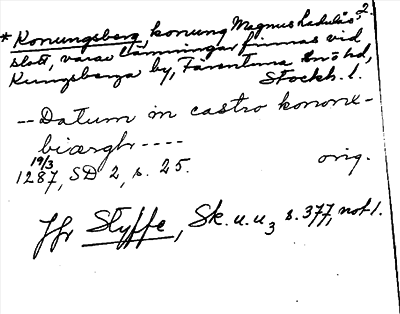 * Konungsberg, konung Magnus Ladulås' ?
slott, varav lämningar finnas vid
Kungsberga by, Färentuna hd,
Stockh. l.
-- Datum in castro kononx-
biærgh ----
19/3
1287, SD 2, s. 25. orig.
Jfr Styffe, Sk. u. u3 s. 377, not 1.